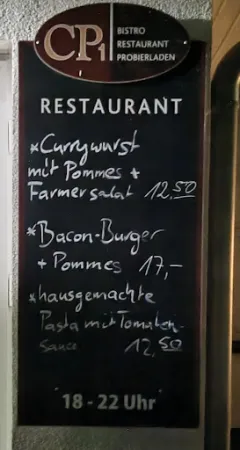 CP1
BISTRO
RESTAURANT
PROBIERLADEN
RESTAURANT
*Currywurst
mit Pommes +
Farmersalat 12,50
*Bacon-Burger
+ Pommes 17,-
*hausgemachte
Pasta mit Tomaten-
sauce 12,50
18 - 22 Uhr